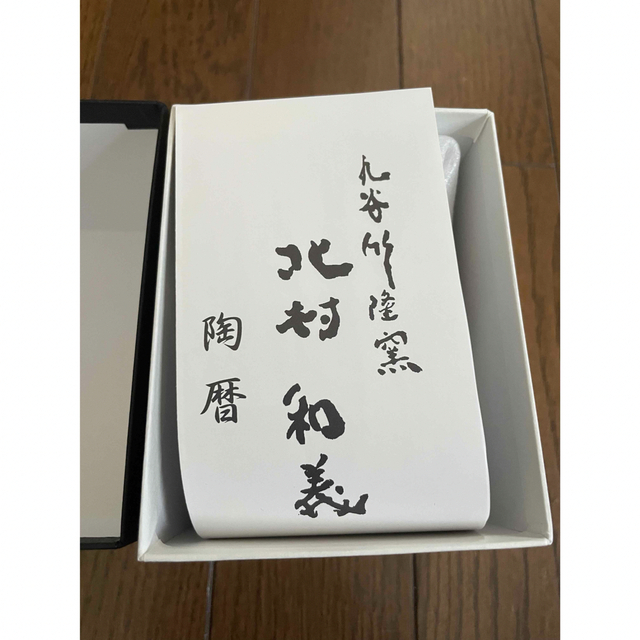 九谷竹隆窯
北村和義
陶暦